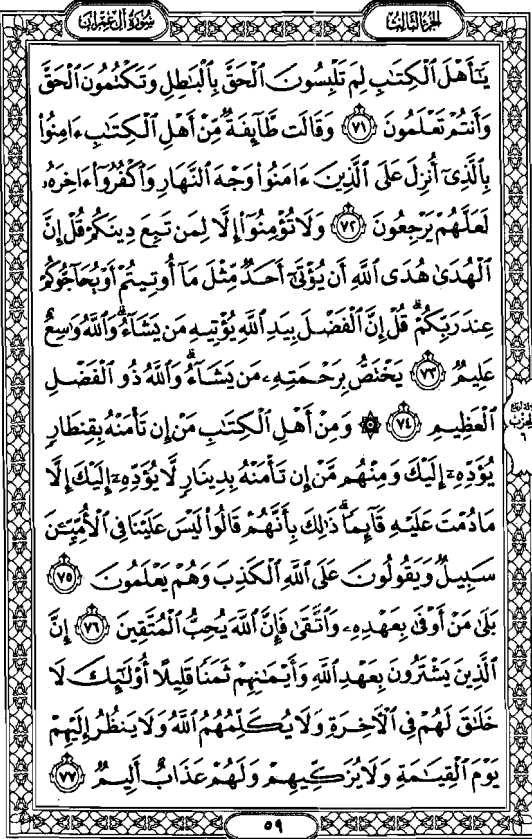 الجزء الثالث
سورة آل عمران
يَٰٓأَهْلَ ٱلْكِتَٰبِ لِمَ تَلْبِسُونَ ٱلْحَقَّ بِٱلْبَٰطِلِ وَتَكْتُمُونَ ٱلْحَقَّ
وَأَنتُمْ تَعْلَمُونَ ٧١ وَقَالَت طَّآئِفَةٌ مِّنْ أَهْلِ ٱلْكِتَٰبِ ءَامِنُوا۟
بِٱلَّذِىٓ أُنزِلَ عَلَى ٱلَّذِينَ ءَامَنُوا۟ وَجْهَ ٱلنَّهَارِ وَٱكْفُرُوٓا۟ ءَاخِرَهُۥ
لَعَلَّهُمْ يَرْجِعُونَ ٧٢ وَلَا تُؤْمِنُوٓا۟ إِلَّا لِمَن تَبِعَ دِينَكُمْ قُلْ إِنَّ
ٱلْهُدَىٰ هُدَى ٱللَّهِ أَن يُؤْتَىٰٓ أَحَدٌ مِّثْلَ مَآ أُوتِيتُمْ أَوْ يُحَآجُّوكُمْ
عِندَ رَبِّكُمْ ۗ قُلْ إِنَّ ٱلْفَضْلَ بِيَدِ ٱللَّهِ يُؤْتِيهِ مَن يَشَآءُ ۗ وَٱللَّهُ وَٰسِعٌ
عَلِيمٌ ٧٣ يَخْتَصُّ بِرَحْمَتِهِۦ مَن يَشَآءُ ۗ وَٱللَّهُ ذُو ٱلْفَضْلِ
ٱلْعَظِيمِ ٧٤ ۞ وَمِنْ أَهْلِ ٱلْكِتَٰبِ مَنْ إِن تَأْمَنْهُ بِقِنطَارٍ
يُؤَدِّهِۦٓ إِلَيْكَ وَمِنْهُم مَّنْ إِن تَأْمَنْهُ بِدِينَارٍ لَّا يُؤَدِّهِۦٓ إِلَيْكَ إِلَّا
مَا دُمْتَ عَلَيْهِ قَآئِمًا ۗ ذَٰلِكَ بِأَنَّهُمْ قَالُوا۟ لَيْسَ عَلَيْنَا فِى ٱلْأُمِّيِّۦنَ
سَبِيلٌ وَيَقُولُونَ عَلَى ٱللَّهِ ٱلْكَذِبَ وَهُمْ يَعْلَمُونَ ٧٥
بَلَىٰ مَنْ أَوْفَىٰ بِعَهْدِهِۦ وَٱتَّقَىٰ فَإِنَّ ٱللَّهَ يُحِبُّ ٱلْمُتَّقِينَ ٧٦ إِنَّ
ٱلَّذِينَ يَشْتَرُونَ بِعَهْدِ ٱللَّهِ وَأَيْمَٰنِهِمْ ثَمَنًا قَلِيلًا أُو۟لَٰٓئِكَ لَا
خَلَٰقَ لَهُمْ فِى ٱلْءَاخِرَةِ وَلَا يُكَلِّمُهُمُ ٱللَّهُ وَلَا يَنظُرُ إِلَيْهِمْ
يَوْمَ ٱلْقِيَٰمَةِ وَلَا يُزَكِّيهِمْ وَلَهُمْ عَذَابٌ أَلِيمٌ ٧٧
٥٩